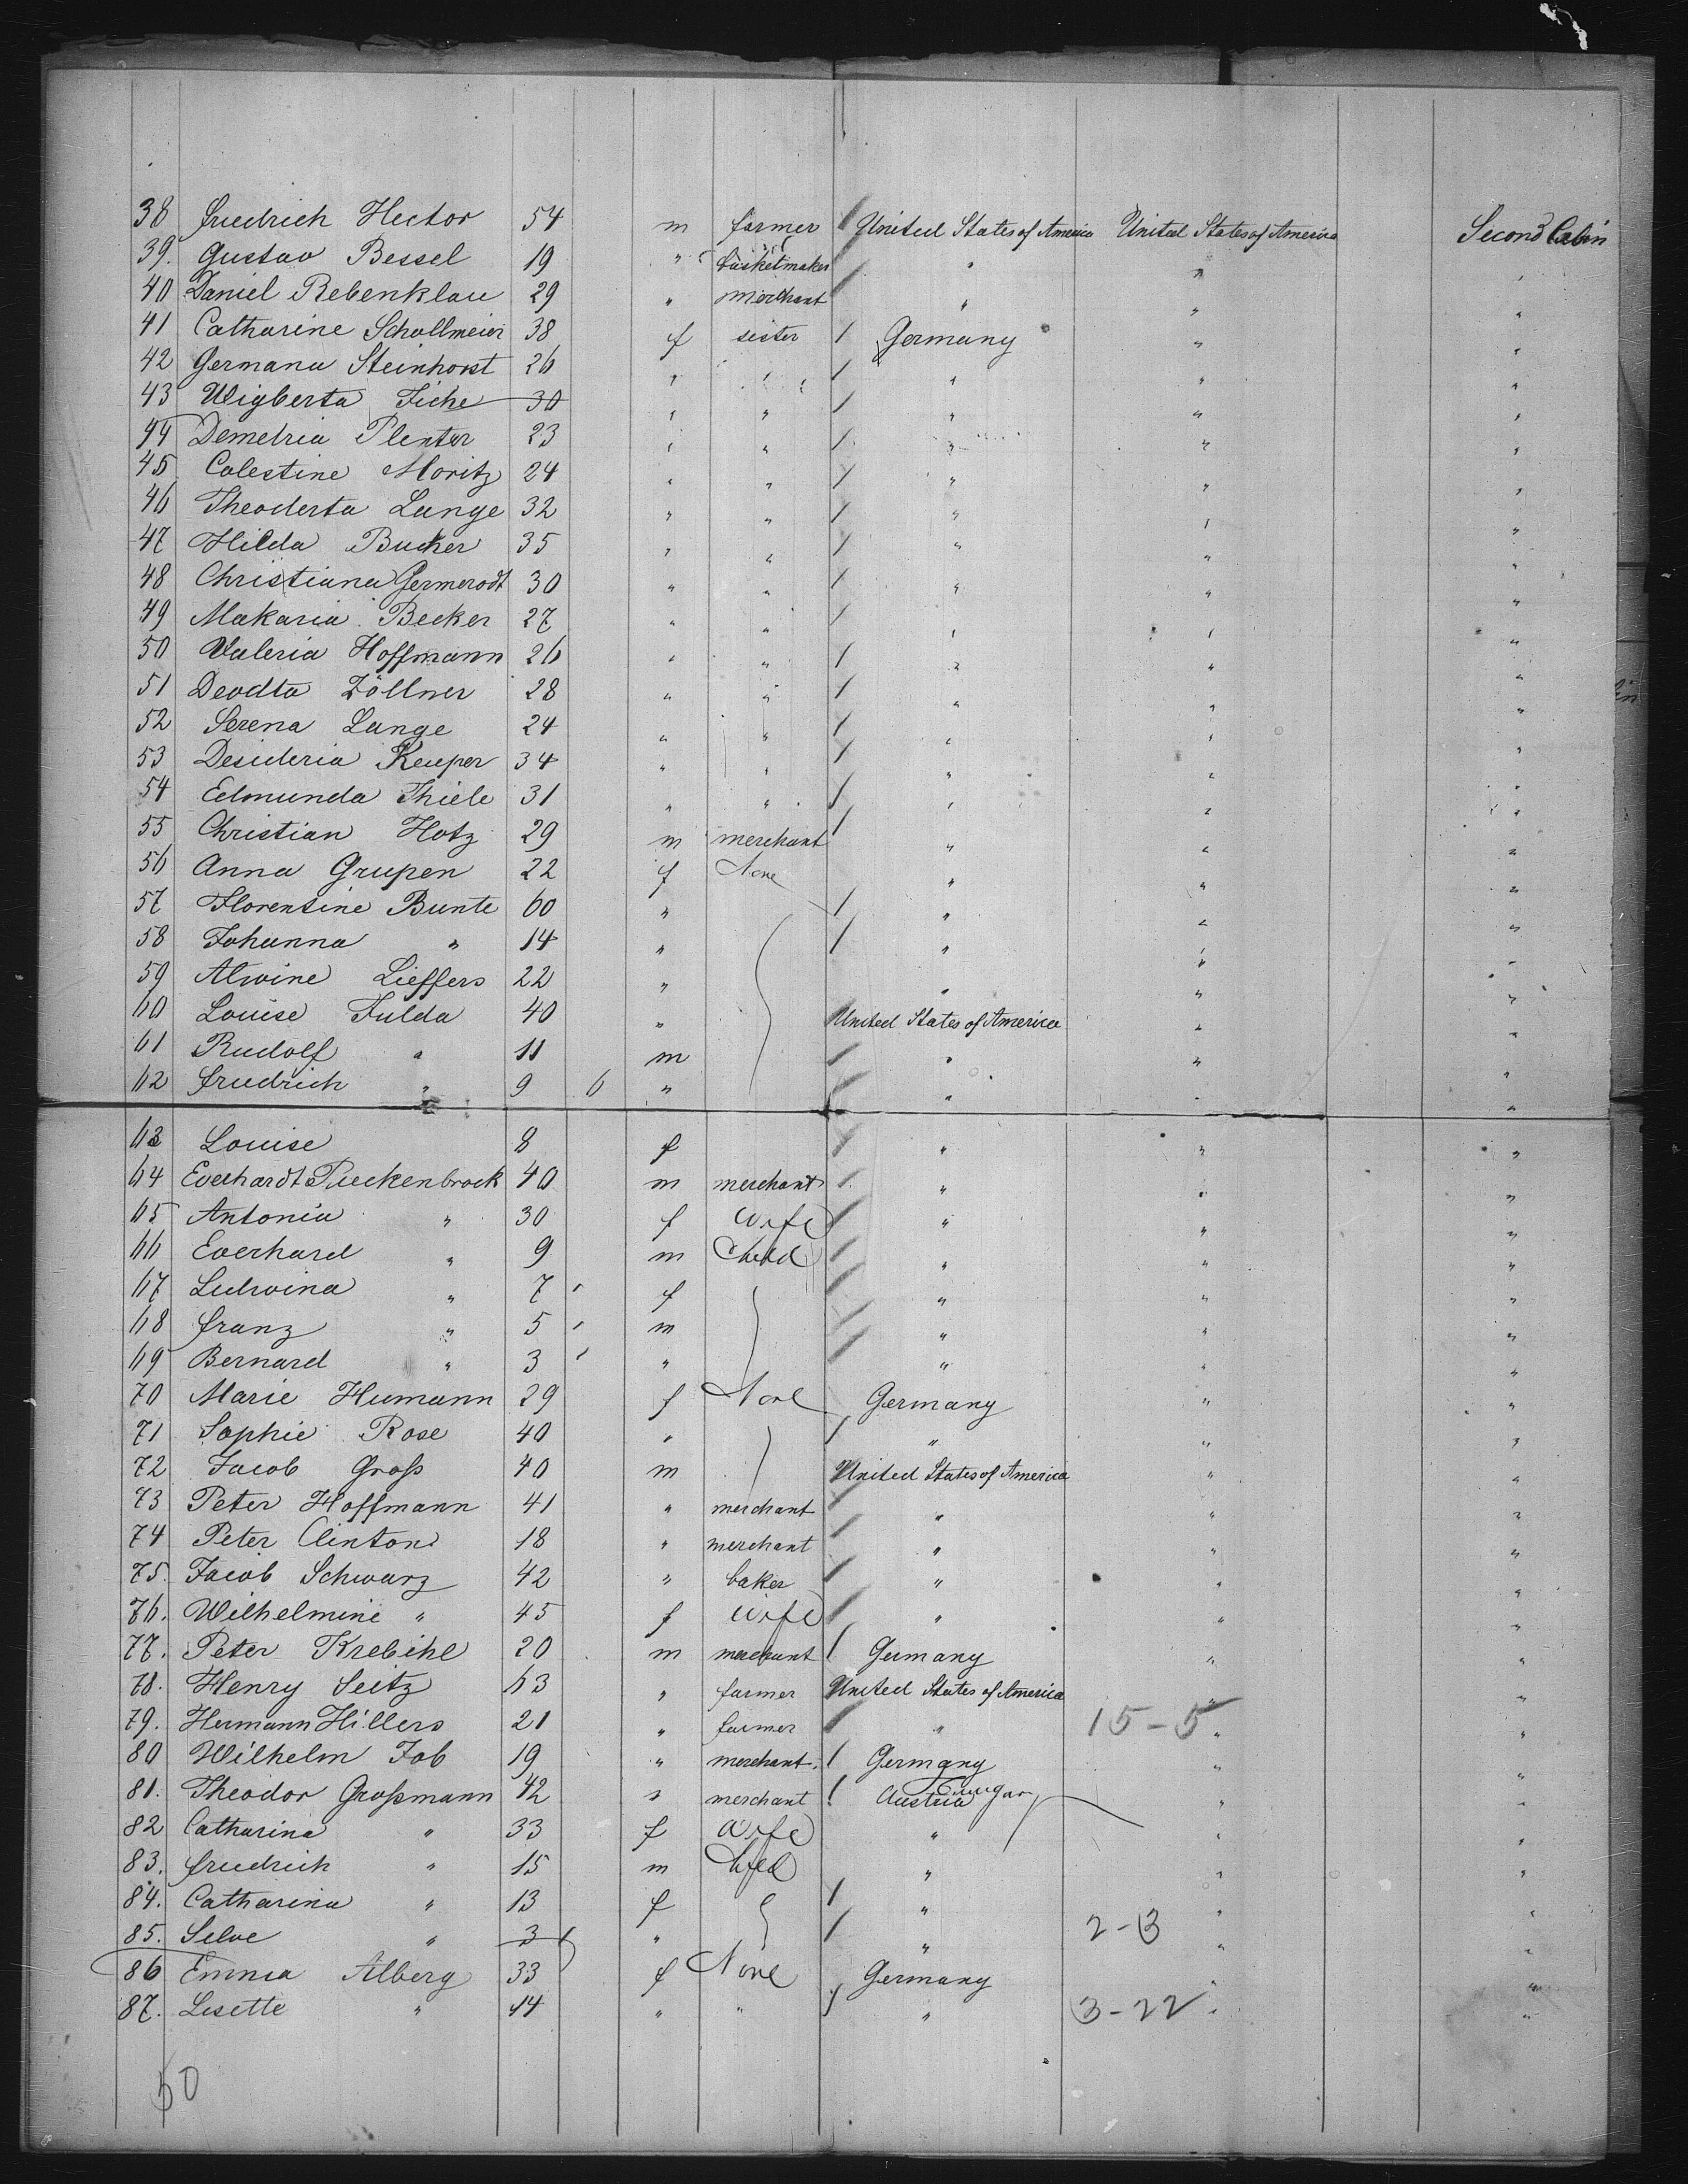 38 Friedrich Hector 54 m farmer United States of America United States of America Second Cabin
39. Gustav Bessel 19 " basketmaker " " "
40 Daniel Rebenklau 29 " merchant " " "
41 Catharine Schollmeier 38 f sister Germany " "
42 Germana Steinhorst 26 " " " " "
43 Wigberta Fiche 30 " " " " "
44 Demetria Plenter 23 " " " " "
45 Colestine Moritz 24 " " " " "
46 Theoderta Lange 32 " " " " "
47 Hilda Bucher 35 " " " " "
48 Christiana Germerodt 30 " " " " "
49 Makaria Becker 27 " " " " "
50 Valeria Hoffmann 26 " " " " "
51 Deodta Zöllner 28 " " " " "
52 Serena Lange 24 " " " " "
53 Desideria Keuper 34 " " " " "
54 Edmunda Thiele 31 " " " " "
55 Christian Hotz 29 m merchant " " "
56 Anna Grupen 22 f None " " "
57 Florentine Bunte 60 " " " "
58 Johanna " 14 " " " "
59 Alwine Lieffers 22 " " " "
60 Louise Fulda 40 " United States of America " "
61 Rudolf " 11 m " " "
62 Friedrich " 9 6 " " " "
63 Louise 8 f " " "
64 Everhardt Pueckenbrock 40 m merchant " " "
65 Antonia " 30 f wife " " "
66 Everhard " 9 m Child " " "
67 Ludwina " 7 f " " "
68 Franz " 5 m " " "
69 Bernard " 3 " " " "
70 Marie Humann 29 f None Germany " "
71 Sophie Rose 40 " " " "
72 Jacob Groß 40 m United States of America " "
73 Peter Hoffmann 41 " merchant " " "
74 Peter Clinton 18 " merchant " " "
75. Jacob Schwarz 42 " baker " " "
76. Wilhelmine " 45 f wife " " "
77. Peter Krebihl 20 m merchant Germany " "
78. Henry Seitz 63 " farmer United States of America " "
79. Hermann Hillers 21 " farmer " 15-5 " "
80 Wilhelm Job 19 " merchant. Germany " "
81. Theodor Großmann 42 " merchant Austria Hungary " "
82 Catharina " 33 f wife " " "
83. Friedrich " 15 m Child " " "
84. Catharina " 13 f " " "
85. Selve " 3 " " 2-3 " "
86 Emma Alberg 33 f None Germany " "
87. Lisette " 14 " " " 3-22 " "
50